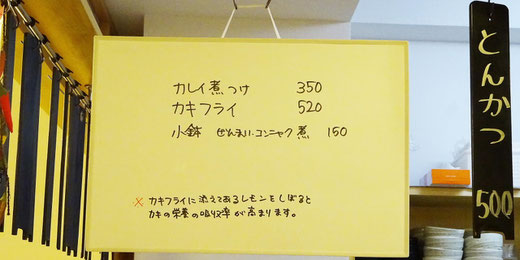 カレイ煮つけ 350
カキフライ 520
小鉢 ぜんまい・コンニャク煮 150
× カキフライに添えてあるレモンをしぼると
カキの栄養の吸収率が高まります。
とんかつ 500